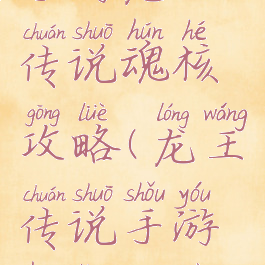 chuán shuō hún hé
传说魂核
gōng lüè lóng wáng
攻略(龙王
chuán shuō shǒu yóu
传说手游